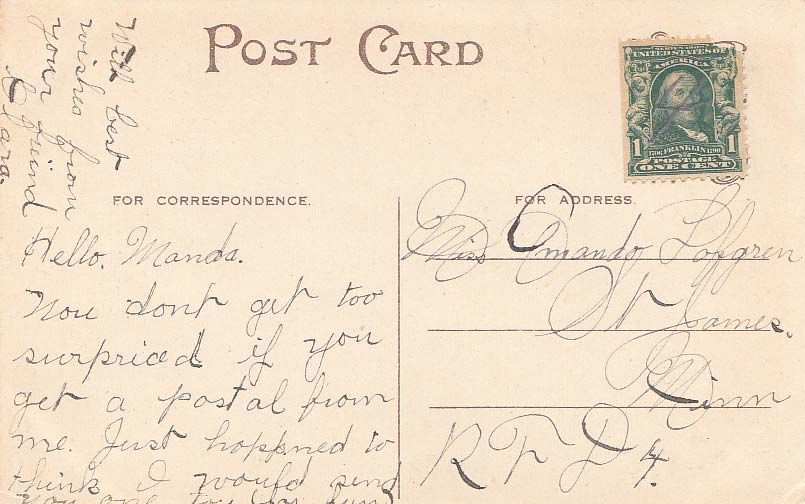 With best
wishes from
your freind
Clara.
POST CARD
SERIES 1902
UNITED STATES OF
AMERICA
1 1
1706 FRANKLIN 1790
POSTAGE
ONE CENT
FOR CORRESPONDENCE.
Hello. Manda.
Now dont get too
surpriced if you
get a postal from
me. Just happned to
think I would send
you one too for fun
FOR ADDRESS.
Miss Amanda Lofgren
St James.
Minn
R F D 4.